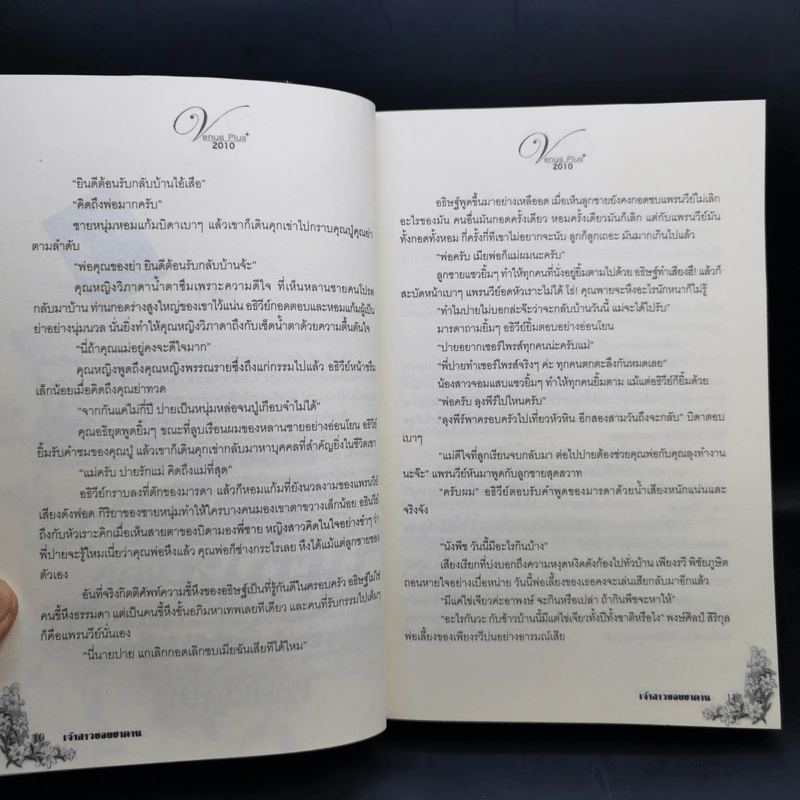 Venus Plus+
2010
"ยินดีต้อนรับกลับบ้านไอ้เสือ"
"คิดถึงพ่อมากครับ"
ชายหนุ่มหอมแก้มบิดาเบาๆ แล้วเขาก็เดินคุกเข่าไปกราบคุณปู่คุณย่า
ตามลำดับ
"พ่อคุณของย่า ยินดีต้อนรับกลับบ้านจ้ะ"
คุณหญิงวิภาดาน้ำตาซึมเพราะความดีใจ ที่เห็นหลานชายคนโปรด
กลับมาบ้าน ท่านกอดร่างสูงใหญ่ของเขาไว้แน่น อธิวีย์กอดตอบและหอมแก้มผู้เป็น
ย่าอย่างนุ่มนวล นั่นยิ่งทำให้คุณหญิงวิภาดาถึงกับเช็ดน้ำตาด้วยความตื้นตันใจ
"นี่ถ้าคุณแม่อยู่คงจะดีใจมาก"
คุณหญิงพูดถึงคุณหญิงพรรณรายซึ่งถึงแก่กรรมไปแล้ว อธิวีย์หน้าขรึม
เล็กน้อยเมื่อคิดถึงคุณย่าทวด
"จากกันแค่ไม่กี่ปี ปายเป็นหนุ่มหล่อจนปู่เกือบจำไม่ได้"
คุณอธิยุตพูดยิ้มๆ ขณะที่ลูบเรือนผมของหลานชายอย่างอ่อนโยน อธิวีย์
ยิ้มรับคำชมของคุณปู่ แล้วเขาก็เดินคุกเข่ากลับมาหาบุคคลที่สำคัญยิ่งในชีวิตเขา
"แม่ครับ ปายรักแม่ คิดถึงแม่ที่สุด"
อธิวีย์กราบลงที่ตักของมารดา แล้วก็หอมแก้มที่ยังนวลงามของแพรนวีย์
เสียงดังฟอด กิริยาของชายหนุ่มทำให้ใครบางคนมองเขาตาขวางเล็กน้อย อธินวีย์
ถึงกับหัวเราะคิกเมื่อเห็นสายตาของบิดามองพี่ชาย หญิงสาวคิดในใจอย่างขำๆ ว่า
พี่ปายจะรู้ไหมเนี่ยว่าคุณพ่อหึงแล้ว คุณพ่อก็ช่างกระไรเลย หึงได้แม้แต่ลูกชายของ
ตัวเอง
อันที่จริงกิตติศัพท์ความขี้หึงของอธิษฐ์เป็นที่รู้กันดีในครอบครัว อธิษฐ์ไม่ใช่
คนขี้หึงธรรมดา แต่เป็นคนขี้หึงขั้นอภิมหาเทพเลยทีเดียว และคนที่รับกรรมไปเต็มๆ
ก็คือแพรนวีย์นั่นเอง
"นี่นายปาย แกเลิกกอดเลิกซบเมียฉันเสียทีได้ไหม"
10 เจ้าสาวของซาตาน
Venus Plus+
2010
อธิษฐ์พูดขึ้นมาอย่างเหลืออด เมื่อเห็นลูกชายยังคงกอดซบแพรนวีย์ไม่เลิก
อะไรของมัน คนอื่นมันกอดครั้งเดียว หอมครั้งเดียวมันก็เลิก แต่กับแพรนวีย์มัน
ทั้งกอดทั้งหอม กี่ครั้งกี่ทีเขาไม่อยากจะนับ ลูกก็ลูกเถอะ มันมากเกินไปแล้ว
"พ่อครับ เมียพ่อก็แม่ผมนะครับ"
ลูกชายแซวยิ้มๆ ทำให้ทุกคนที่นั่งอยู่ยิ้มตามไปด้วย อธิษฐ์ทำเสียงฮึ! แล้วก็
สะบัดหน้าเบาๆ แพรนวีย์อดหัวเราะไม่ได้ โธ่! คุณพายจะหึงอะไรนักหนาก็ไม่รู้
"ทำไมปายไม่บอกล่ะจ๊ะว่าจะกลับบ้านวันนี้ แม่จะได้ไปรับ"
มารดาถามยิ้มๆ อธิวีย์ยิ้มตอบอย่างอ่อนโยน
"ปายอยากเซอร์ไพรส์ทุกคนน่ะครับแม่"
"พี่ปายทำเซอร์ไพรส์จริงๆ ค่ะ ทุกคนตกตะลึงกันหมดเลย"
น้องสาวจอมแสบแซวยิ้มๆ ทำให้ทุกคนยิ้มตาม แม้แต่อธิวีย์ก็ยิ้มด้วย
"พ่อครับ ลุงพีร์ไปไหนครับ"
"ลุงพีร์พาครอบครัวไปเที่ยวหัวหิน อีกสองสามวันถึงจะกลับ" บิดาตอบ
เบาๆ
"แม่ดีใจที่ลูกเรียนจบกลับมา ต่อไปปายต้องช่วยคุณพ่อกับคุณลุงทำงาน
นะจ๊ะ" แพรนวีย์หันมาพูดกับลูกชายสุดสวาท
"ครับผม" อธิวีย์ตอบรับคำพูดของมารดาด้วยน้ำเสียงหนักแน่นและ
จริงจัง
"นังพีช วันนี้มีอะไรกินบ้าง"
เสียงเรียกที่บ่งบอกถึงความหงุดหงิดดังก้องไปทั่วบ้าน เพียงรวี พิชัยภูษิต
ถอนหายใจอย่างเบื่อหน่าย วันนี้พ่อเลี้ยงของเธอคงจะเล่นเสียกลับมาอีกแล้ว
"มีแค่ไข่เจียวค่ะอาพงษ์ จะกินหรือเปล่า ถ้ากินพีชจะหาให้"
"อะไรกันวะ กับข้าวบ้านนี้มีแต่ไข่เจียวทั้งปีทั้งชาติหรือไง" พงษ์ศิลป์ สิริกุล
พ่อเลี้ยงของเพียงรวีบ่นอย่างอารมณ์เสีย
เจ้าสาวของซาตาน